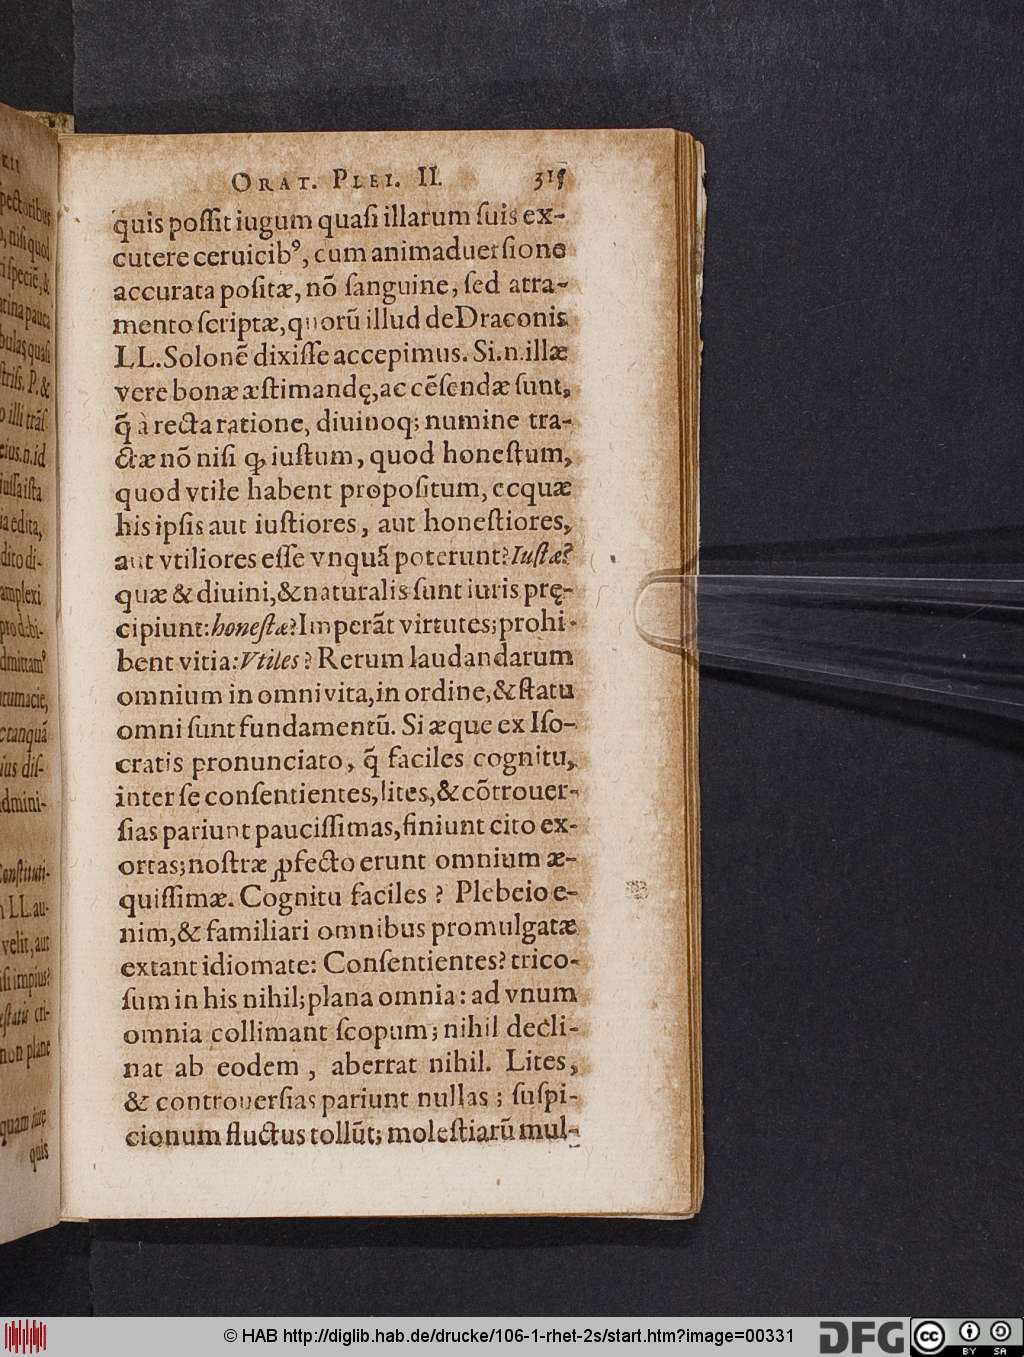 ORAT. PLEI. II. 315
quis poſſit iugum quaſi illarum ſuis ex-
cutere ceruicibꝰ, cum animaduerſione
accurata poſitæ, nõ ſanguine, ſed atra-
mento ſcriptæ, quorũ illud de Draconis
LL. Solonẽ dixiſſe accepimus. Si.n.illæ
vere bonæ æſtimandę, ac cẽſendæ ſunt,
q̃ à recta ratione, diuinoq; numine tra-
ctæ nõ niſi ꝙ iuſtum, quod honeſtum,
quod vtile habent propoſitum, ecquæ
his ipſis aut iuſtiores, aut honeſtiores,
aut vtiliores eſſe vnquã poterunt? Iuſtæ?
quæ & diuini, & naturalis ſunt iuris prę-
cipiunt: honeſtæ? Imperãt virtutes; prohi-
bent vitia: Vtiles? Rerum laudandarum
omnium in omni vita, in ordine, & ſtatu
omni ſunt fundamentũ. Si æque ex Iſo-
cratis pronunciato, q̃ faciles cognitu,
inter ſe conſentientes, lites, & cõtrouer-
ſias pariunt pauciſſimas, finiunt cito ex-
ortas; noſtræ ꝓfecto erunt omnium æ-
quiſſimæ. Cognitu faciles? Plebeio e-
nim, & familiari omnibus promulgatæ
extant idiomate: Conſentientes? trico-
ſum in his nihil; plana omnia: ad vnum
omnia collimant ſcopum; nihil decli-
nat ab eodem, aberrat nihil. Lites,
& controuerſias pariunt nullas; ſuſpi-
cionum fluctus tollũt; moleſtiarũ mul-
© HAB http://diglib.hab.de/drucke/106-1-rhet-2s/start.htm?image=00331
DFG
cc BY SA